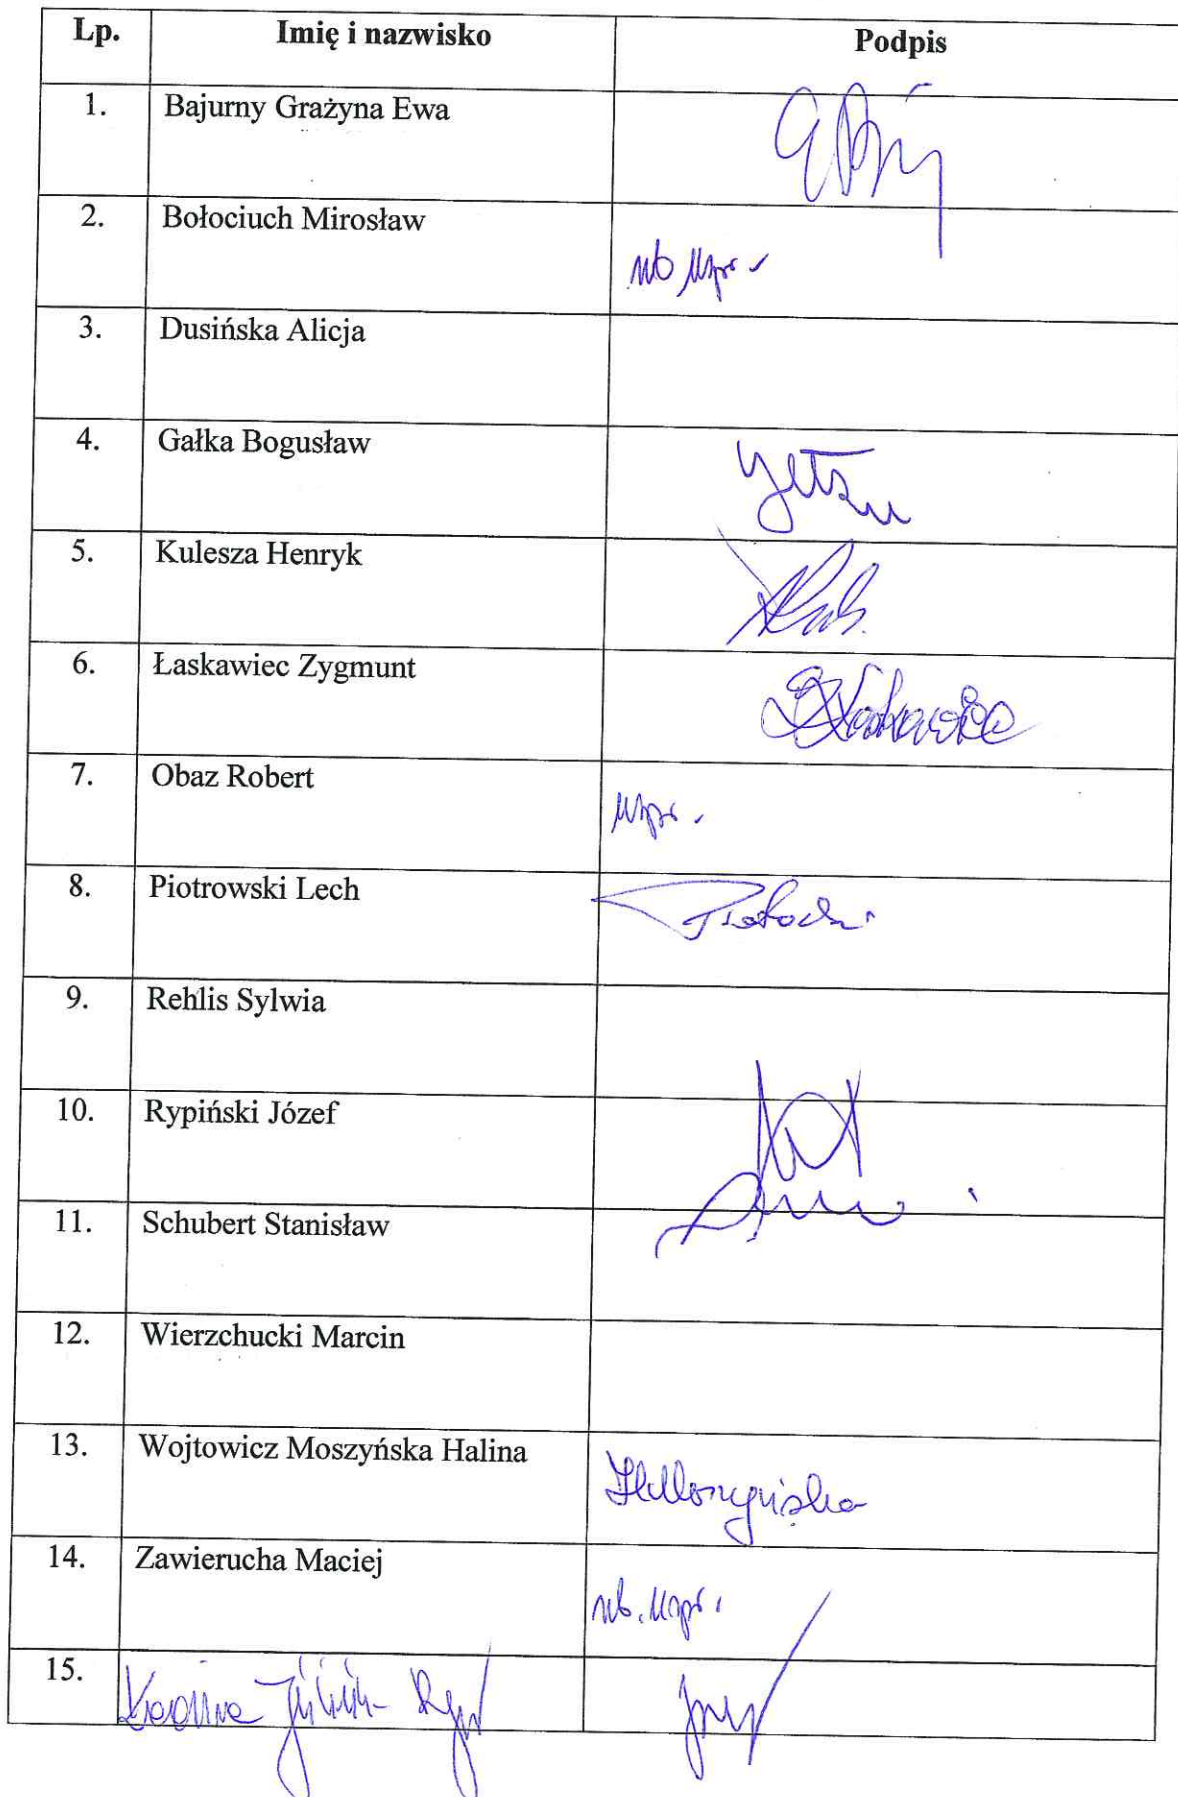 Lp. Imię i nazwisko Podpis
1. Bajurny Grażyna Ewa
2. Bołociuch Mirosław
nb uspr.
3. Dusińska Alicja
4. Gałka Bogusław
5. Kulesza Henryk
6. Łaskawiec Zygmunt
7. Obaz Robert
uspr.
8. Piotrowski Lech
9. Rehlis Sylwia
10. Rypiński Józef
11. Schubert Stanisław
12. Wierzchucki Marcin
13. Wojtowicz Moszyńska Halina
14. Zawierucha Maciej
nb. uspr.
15.